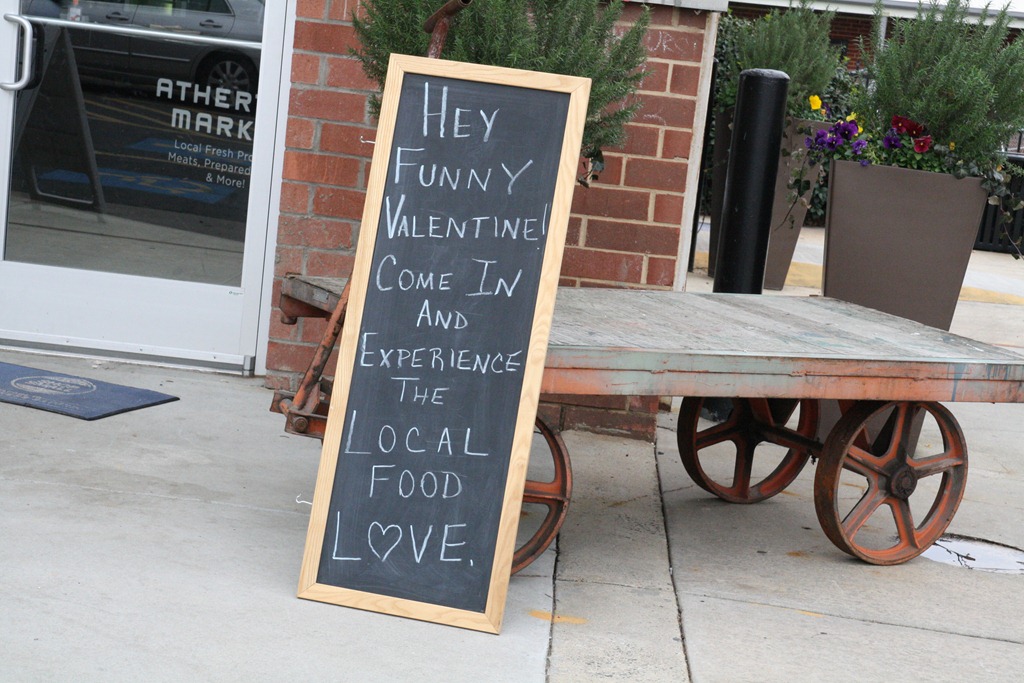 ATHER
MARK
Local Fresh Pro
Meats, Prepared
& More!
HEY
FUNNY
VALENTINE!
COME IN
AND
EXPERIENCE
THE
LOCAL
FOOD
L♡VE.